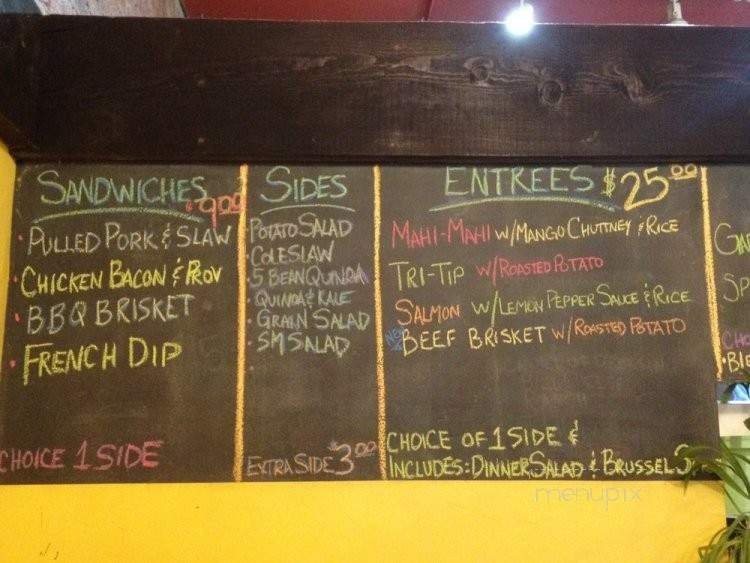 SANDWICHES $9.00
• PULLED PORK & SLAW
• CHICKEN BACON & PROV
• BBQ BRISKET
• FRENCH DIP
CHOICE 1 SIDE
SIDES
• POTATO SALAD
• COLESLAW
• 5 BEAN QUINOA
• QUINOA & KALE
• GRAIN SALAD
• SM SALAD
EXTRA SIDE $3.00
ENTREES $25.00
MAHI-MAHI W/MANGO CHUTTNEY & RICE
TRI-TIP W/ROASTED POTATO
SALMON W/LEMON PEPPER SAUCE & RICE
NEW BEEF BRISKET W/ROASTED POTATO
CHOICE OF 1 SIDE &
INCLUDES: DINNER SALAD & BRUSSEL
menupix